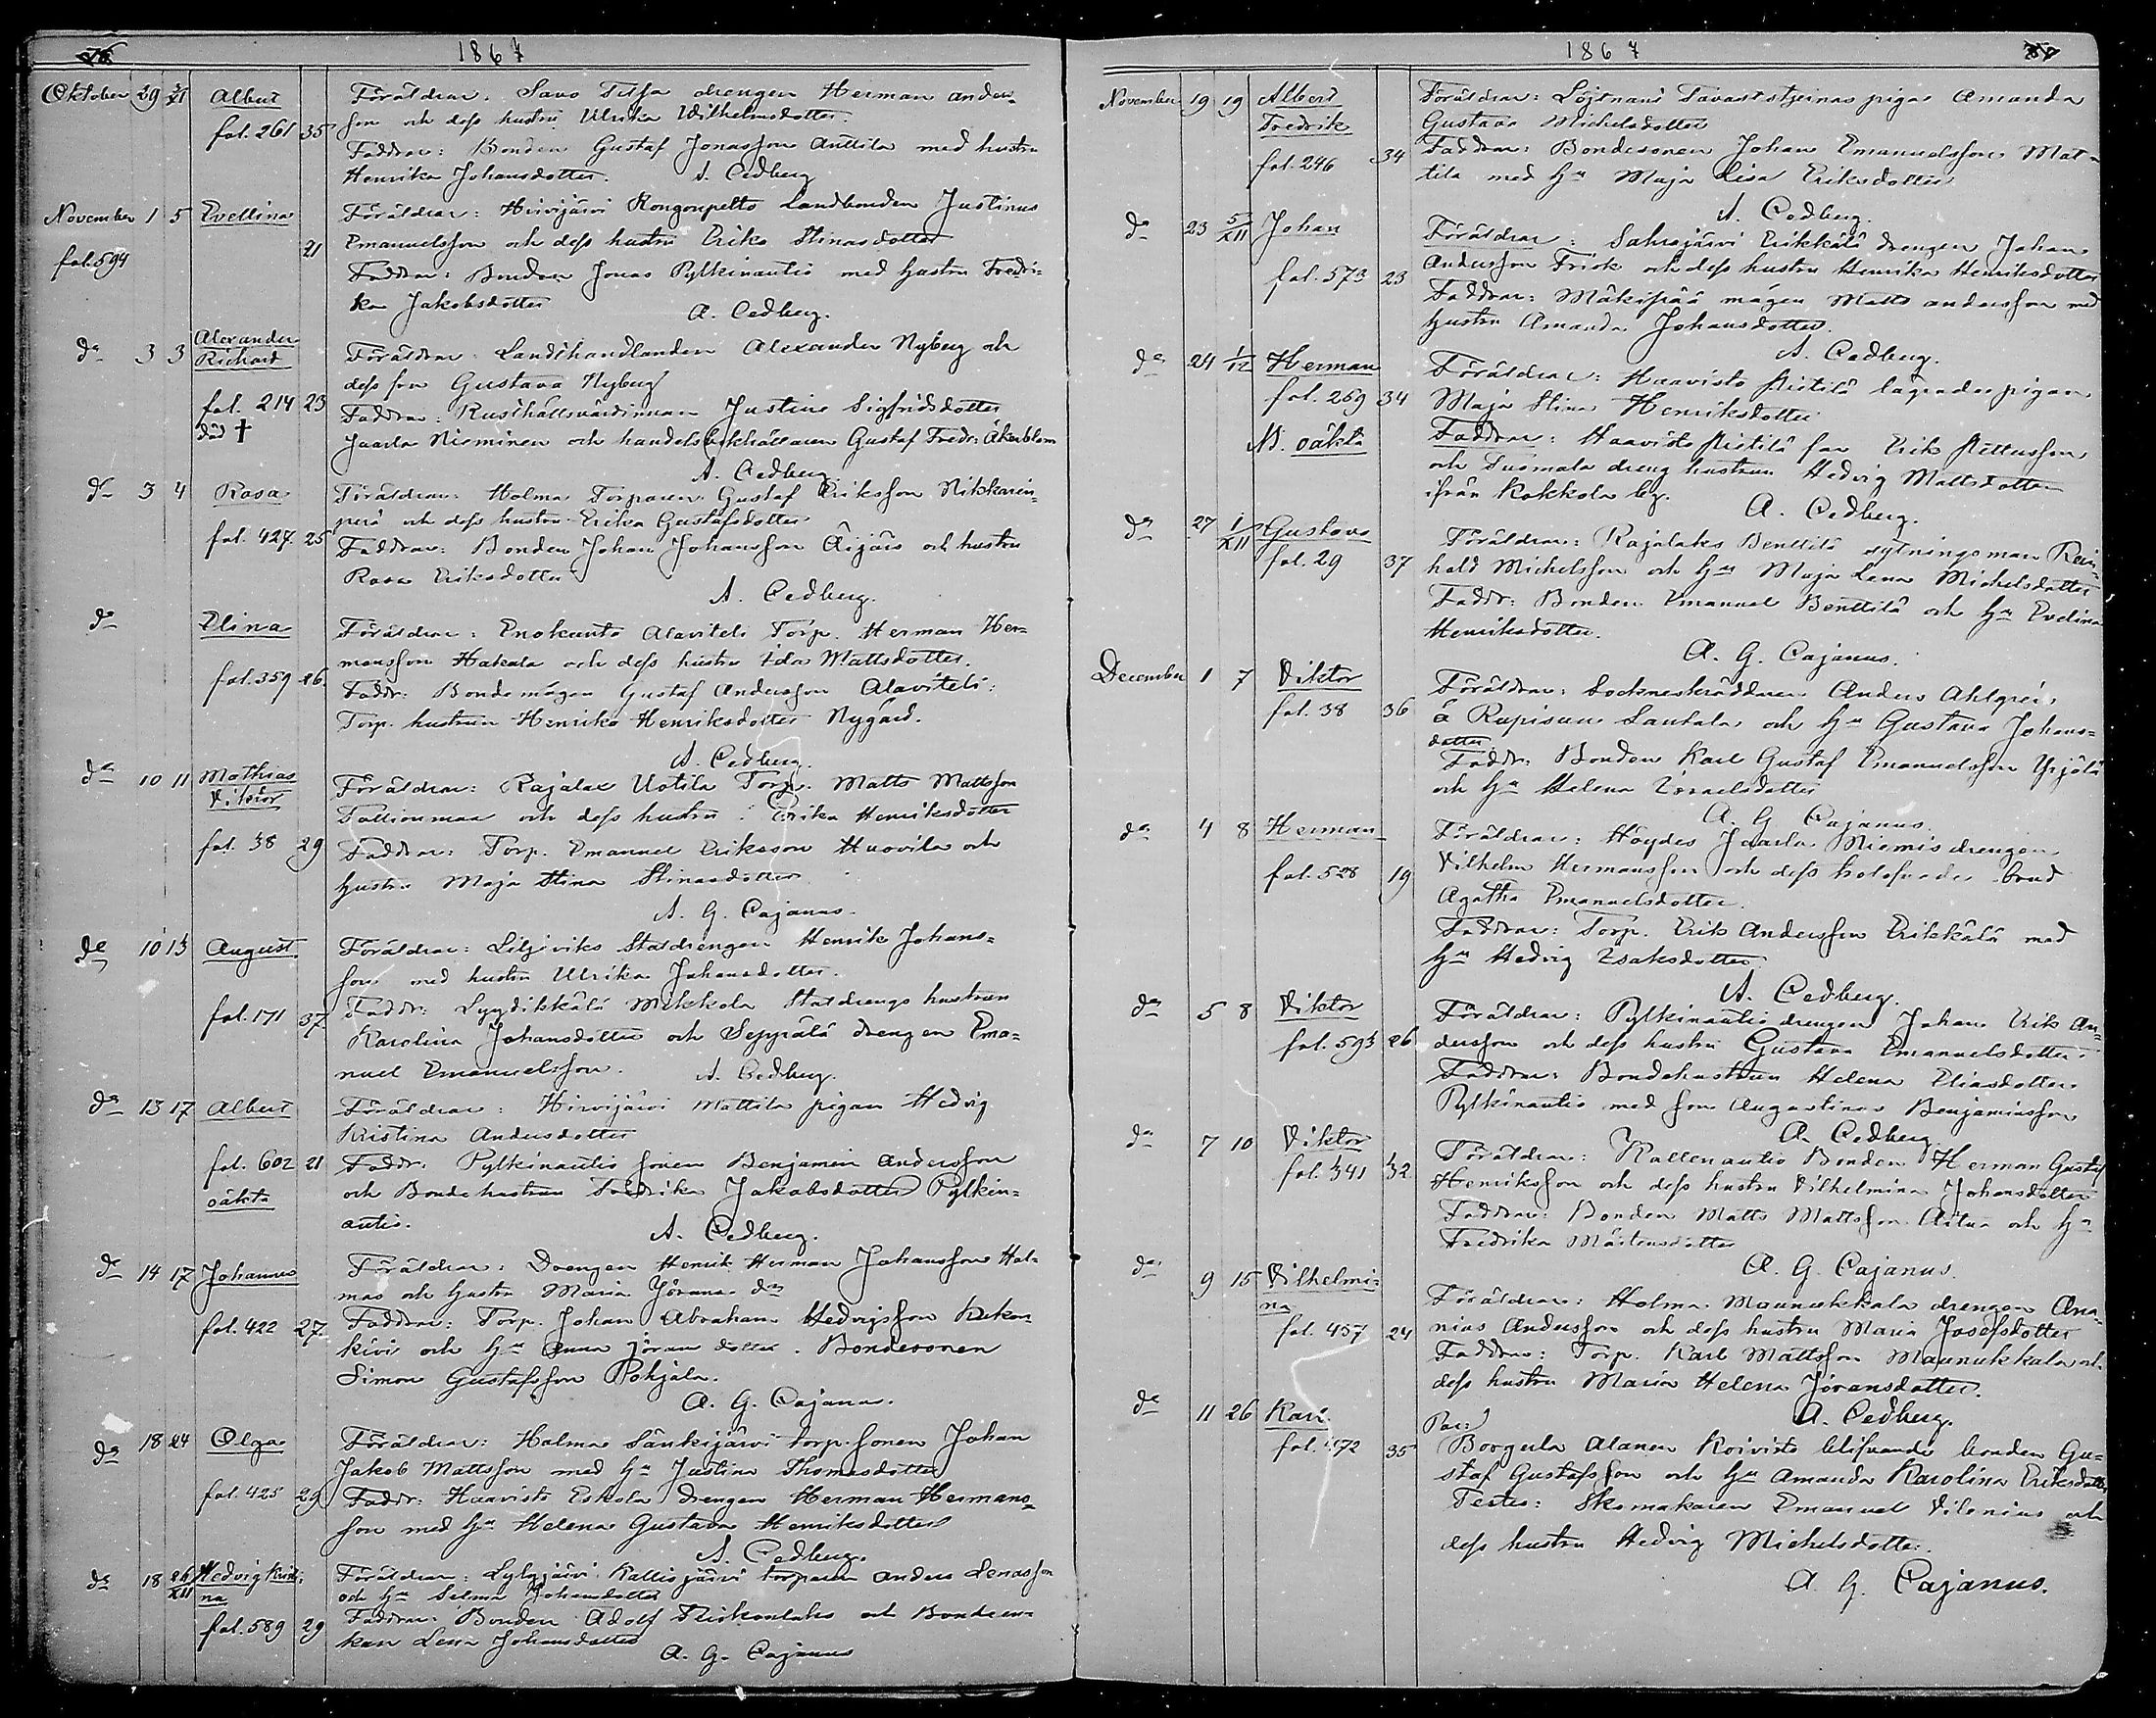 1867
Oktober 29 3/XI Albert Föräldrar: Savo Tilsa drengen Herman Anders-
fol. 261 35 son och dess hustru Ulrika Wilhelmsdotter.
Faddrar: Bonden Gustaf Jonasson Anttila med hustru
Henrika Johansdotter. A. Cedberg
November 1 5 Evellina Föräldrar: Hirvijärvi Kongonpelto Landbonden Justinus
fol. 594 21 Emanuelsson och dess hustru Erika Stinasdotter
Faddrar: Bonden Jonas Pylkinautio med hustru Fredri-
ka Jakobsdotter A. Cedberg.
do 3 3 Alexander
Richard Föräldrar: Landthandlanden Alexander Nyberg och
dess fru Gustava Nyberg
fol. 214 23 Faddrar: Rusthållsvärdinnan Justina Sigfridsdotter
död † Jaarla Nieminen och handelsbokhållaren Gustaf Fredr: Åkerblom
A. Cedberg
do 3 4 Rosa Föräldrar: Holma Torparen Gustaf Eriksson Nikkarin-
perä och dess hustru Erika Gustafsdotter
fol. 427. 25 Faddrar: Bonden Johan Johansson Äijäis och hustru
Rosa Eriksdotter
A. Cedberg.
do Elina Föräldrar: Enokunta Alaviteli Torp. Herman Her-
mansson Hakala och dess hustru Ida Mattsdotter.
fol. 359 26. Faddr: Bondemågen Gustaf Andersson Alaviteli:
Torp. hustrun Henrika Henriksdotter Nygård.
A. Cedberg.
do 10 11 Mathias
Viktor Föräldrar: Rajalax Uotila Torp. Matts Mattsson
Tallionmaa och dess hustru: Erika Henriksdotter
fol. 38 29 Faddrar: Torp. Emanuel Eriksson Huovila och
hustru Maja Stina Stinasdotter
A. G. Cajanus.
do 10 13 August. Föräldrar: Liljeviks Statdrengen Henrik Johans-
son med hustru Ulrika Johansdotter.
fol. 171 37 Faddr: Lyydikkälä Mikkola Statdrengs hustrun
Karolina Johansdotter och Seppälä drengen Ema-
nuel Emanuelsson. A. Cedberg.
do 13 17 Albert Föräldrar: Hirvijärvi Mattila pigan Hedvig
Kristina Andersdotter
fol. 602 21 Faddr. Pylkinautio sonen Benjamin Andersson
oäkta och Bondehustrun Fredrika Jakobsdotter Pylkin-
autio. A. Cedberg.
do 14 17 Johannes Föräldrar: Drengen Henrik Herman Johansson Hol-
mas och hustru Maria Jörans dr
fol. 422 27. Faddrar: Torp. Johan Abraham Hedvigsson
kivi och hu Anna Jörans dotter. Bondesonen
Simon Gustafsson Pohjala.
A. G. Cajanus.
do 18 24 Olga Föräldrar: Holma Särkijärvi torp. sonen Johan
Jakob Mattsson med hu Justina Thomasdotter
fol. 425 29 Faddr: Haavisto Eskola drengen Herman Hermans-
son med hu Helena Gustava Henriksdotter
A. Cedberg.
do 18 26/XII Hedvig Kristi-
na Föräldrar: Lylyjärvi Kallisjärvi torparen Anders Lenasson
och hu Selma Johansdotter
fol. 589 29 Faddrar: Bonden Adolf och Bondeen-
kan Lena Johansdotter A. G. Cajanus
1867
November 19 19 Albert
Fredrik Föräldrar: Löjtnant Tavaststjernas pigan Amanda
Gustava Michelsdotter
fol. 246 34 Faddrar: Bondesonen Johan Emanuelsson Mat-
tila med hu Maja Lisa Eriksdotter
A. Cedberg.
do 23 5/XII Johan Föräldrar: Sahrajärvi Erikkälä drengen Johan
Andersson Frisk och dess hustru Henrika Henriksdotter
fol. 573 23 Faddrar: Mäkipää mågen Matts Andersson med
hustru Amanda Johansdotter.
A. Cedberg.
do 24 1/12 Herman Föräldrar: Haavisto Pietilä lagradespigan
fol. 269 34 Maja Stina Henriksdotter
N. oäkta Faddrar: Haavisto Pietilä far Erik
och Tuomala dreng hustrun Hedvig Mattsdotter
ifrån Kokkola by. A. Cedberg.
do 27 1/XII Gustava Föräldrar: Rajalaks Benttilä sytningsman Rein-
fol. 29 37 hold Michelsson och hu Maja Lena Michelsdotter
Faddr: Bonden Emanuel Benttilä och hu Evelina
Henriksdotter.
A. G. Cajanus.
December 1 7 Viktor Föräldrar: Sockneskräddaren Anders Ahlgren
fol. 38 36 å Rupisuu Lantala och hu Gustava Johans-
dotter
Faddr: Bonden Karl Gustaf Emanuelsson Yrjölä
och hu Helena Israelsdotter
A. G. Cajanus.
do 4 8 Herman Föräldrar: Höydes Jaarla Niemis drengen
fol. 528 19 Vilhelm Hermansson och dess trolofvade brud
Agatha Emanuelsdotter.
Faddrar: Torp. Erik Andersson Erikkälä med
hu Hedvig Isaksdotter
A. Cedberg.
do 5 8 Viktor Föräldrar: Pylkinautio drengen Johan Erik An-
fol. 593 26 dersson och dess hustru Gustava Emanuelsdotter.
Faddrar: Bondehustrun Helena Eliasdotter
Pylkinautio med son Augustinus Benjaminsson
A. Cedberg
do 7 10 Viktor Föräldrar: Kallenautio Bonden Herman Gustaf
fol. 341 32. Henriksson och dess hustru Vilhelmina Johansdotter
Faddrar: Bonden Matts Mattsson Aitua och hu
Fredrika Mårtensdotter
A. G. Cajanus.
do 9 15 Vilhelmi-
na Föräldrar: Holma Maunukkala drengen Ana-
fol. 457 24 nias Andersson och dess hustru Maria Josefsdotter
Faddrar: Torp. Karl Mattsson Maunukkala och
dess hustru Maria Helena Jöransdotter.
A. Cedberg.
do 11 26 Karl. Par:
fol. 472 35 Borgula Alanen Koivisto blifvande bonden Gu-
staf Gustafsson och hu Amanda Karolina Eriksdotter
Testes: Skomakaren Emanuel Vilenius och
dess hustru Hedvig Michelsdotter.
A. G. Cajanus.